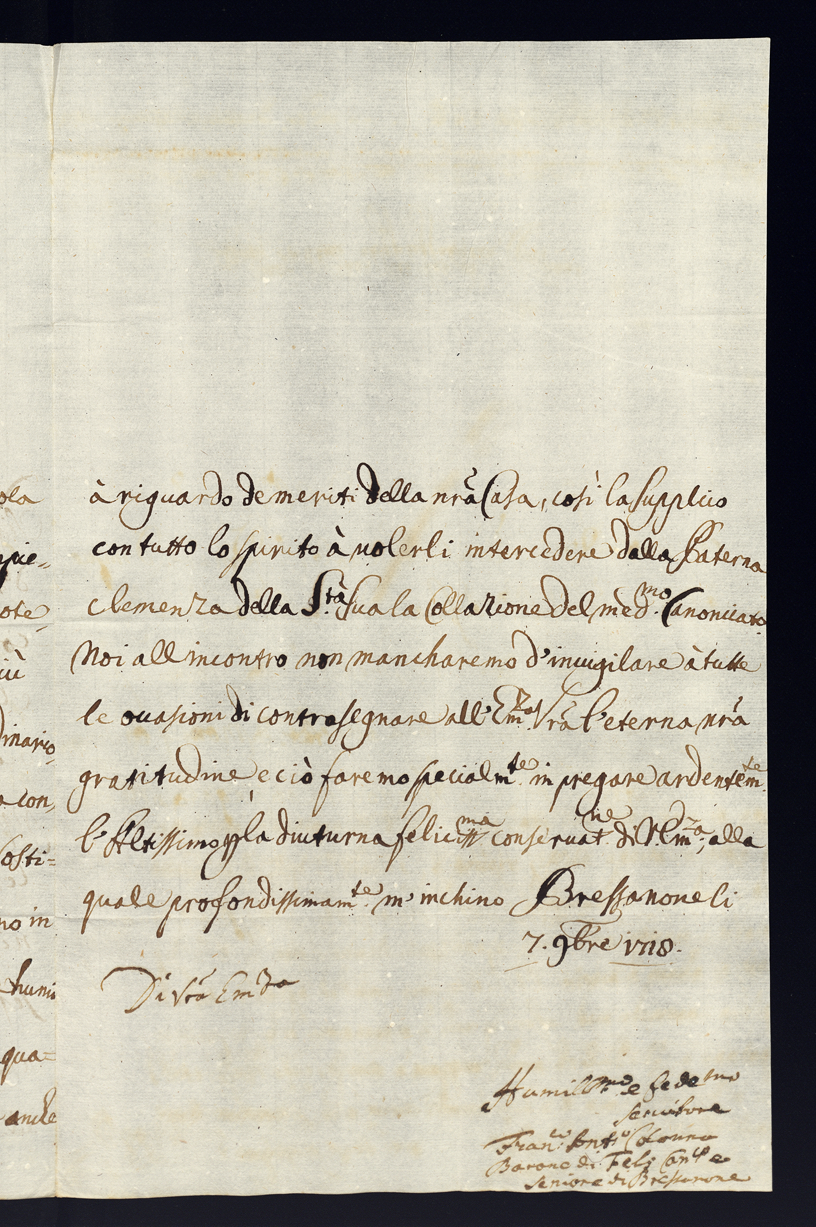 ola
pie=
ote
iù
dinario
a con,
Costi=
no in
humi
qua=
anche
à riguardo de meriti della nrã Casa, così la supplico
con tutto lo spirito à uolerli intercedere dalla Paterna
clemenza della S.tà Sua la Collazione del med.mo Canonicato.
Noi all incontro non mancharemo d'inuigilare à tutte
le ouasioni di contrasegnare all'Em.za Vrã l'eterna nrã
gratitudine, e ciò faremo specialm.te in pregare ardentem.te
l'Altissimo p la diuturna feliciss.ma conseruat.ne di V. Em.za, alla
quale profondissimam.te m'inchino Bressanone li
7. 9bre 1718.
Di Vrã Em.za
Humill.mo e fede.mo
seruitore
Fran.co Ant.o Colonna
Barone di Feli Can.co e
Seniore di Bressanone